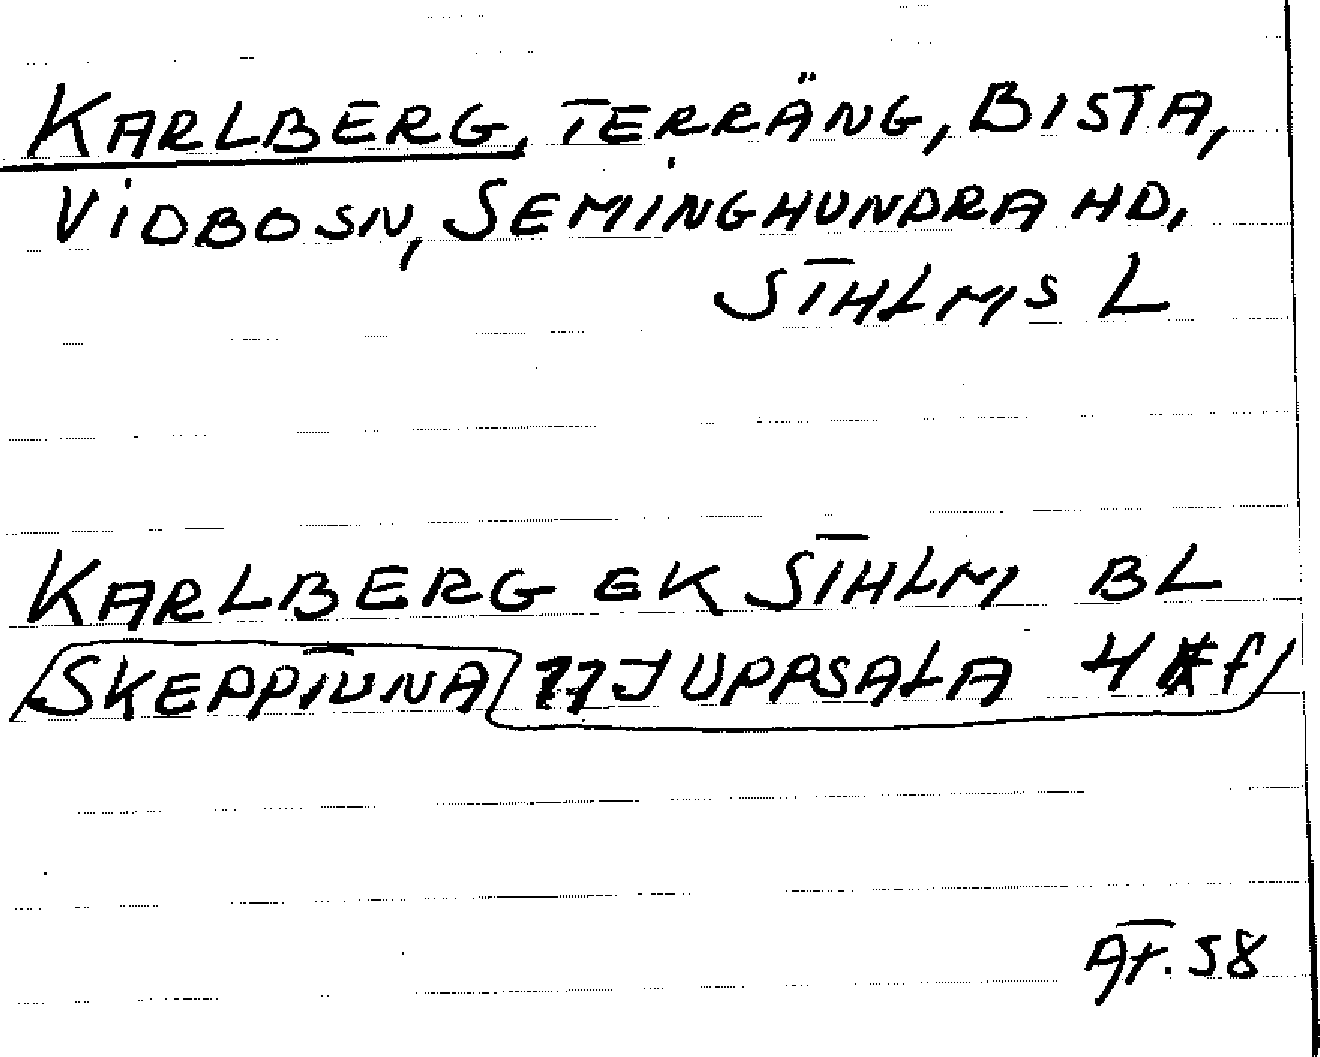 KARLBERG, TERRÄNG, BISTA,
VIDBO SN, SEMINGHUNDRA HD,
STHLMS L
KARLBERG EK STHLM BL
SKEPPTUNA 11J UPPSALA 4 f
AT. 58